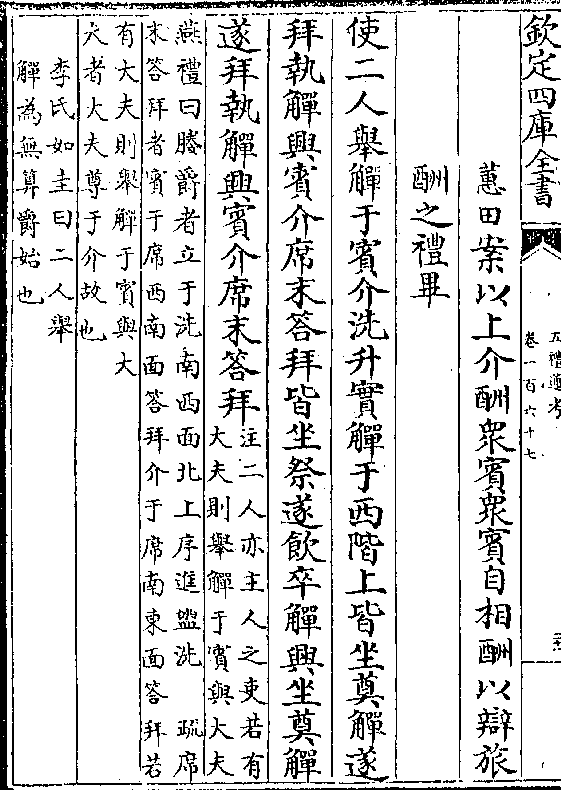 欽定四庫全書
五禮通考
卷一百六十七
蕙田案以上介酬衆賓衆賓自相酬以辯旅
酬之禮畢
使二人舉觶于賓介洗升實觶于西階上皆坐奠觶遂
拜執觶興賓介席末答拜皆坐祭遂飲卒觶興坐奠觶
遂拜執觶興賓介席末答拜
注二人亦主人之吏若有
大夫則舉觶于賓與大夫
燕禮曰媵爵者立于洗南西面北上序進盥洗 疏席
末答拜者賓于席西南面答拜介于席南東面答拜若
有大夫則舉觶于賓與大
夫者大夫尊于介故也
李氏如圭曰二人舉
觶為無算爵始也